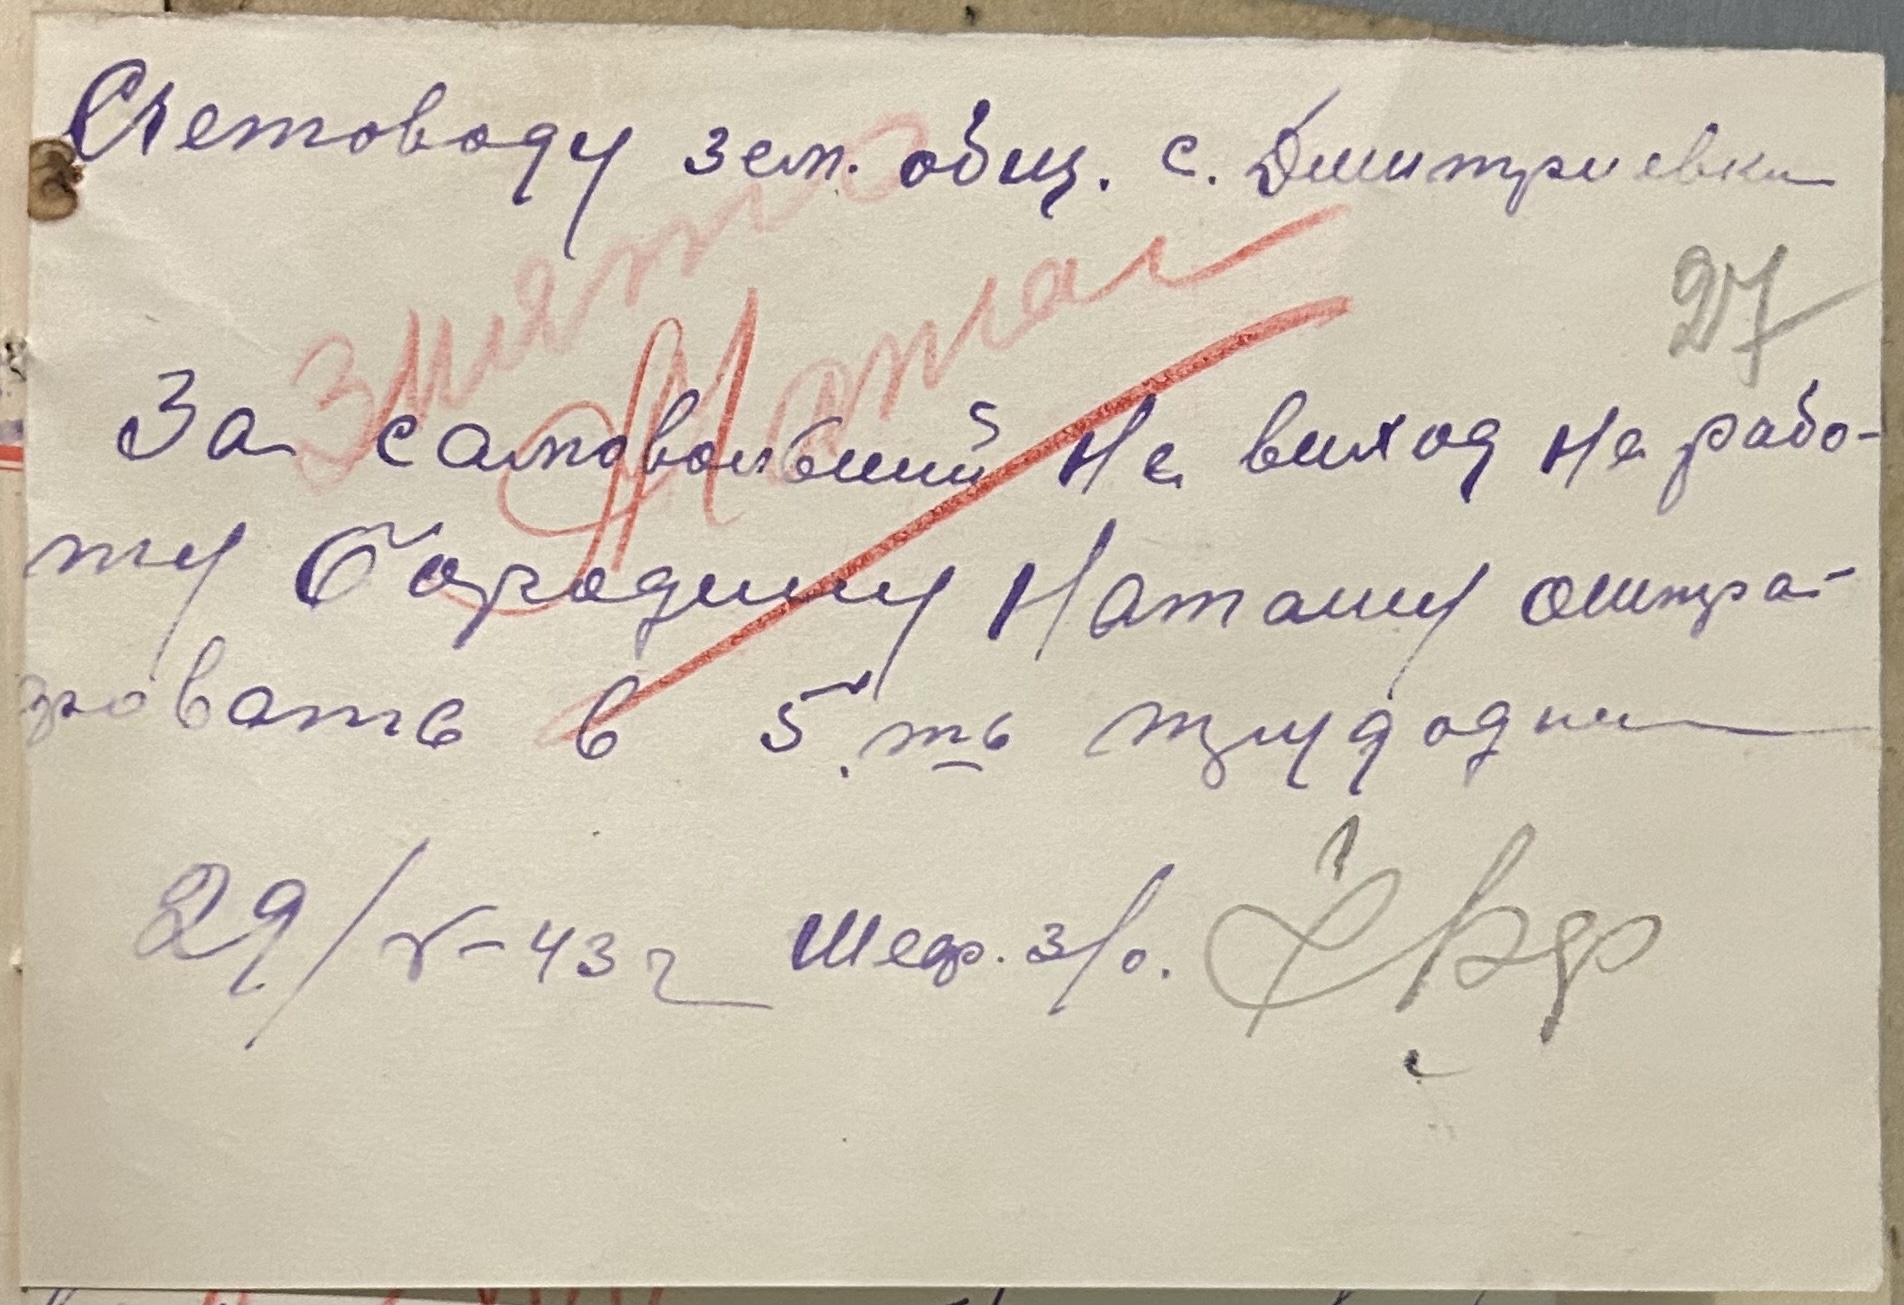 Счетоводу зем. общ. с. Дмитриевки
Знято
27
За самовольний не виход на рабо-
ту Бородину Наташу оштра-
фовать в 5 ть трудодни
29/V-43 г Шеф. з/о.